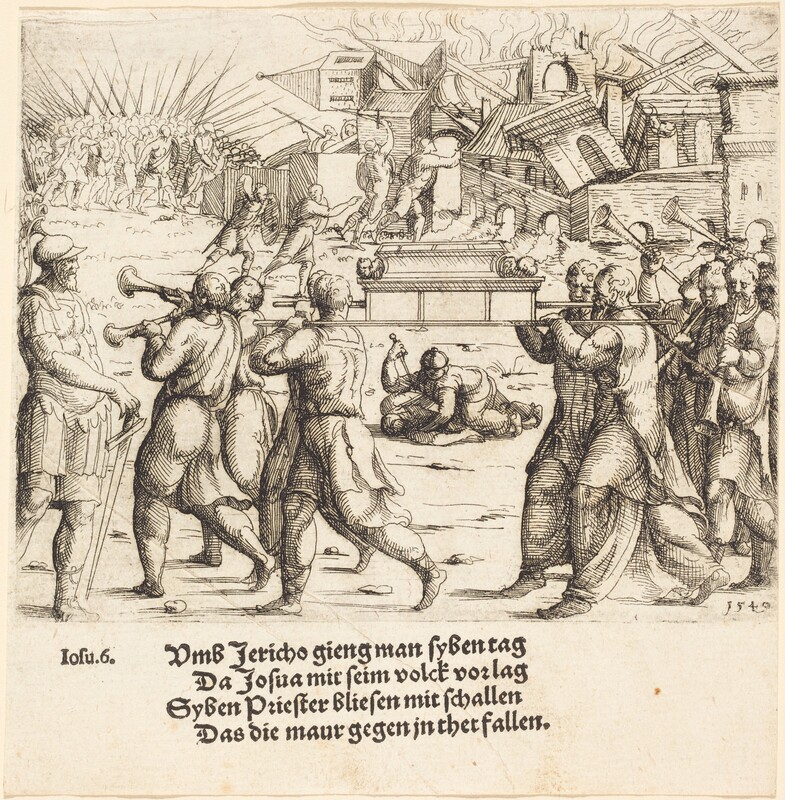 1540
Iosu.6.
Vmb Jericho gieng man syben tag
Da Josua mit seim volck vor lag
Syben Priester bliesen mit schallen
Das die maur gegen jn thet fallen.